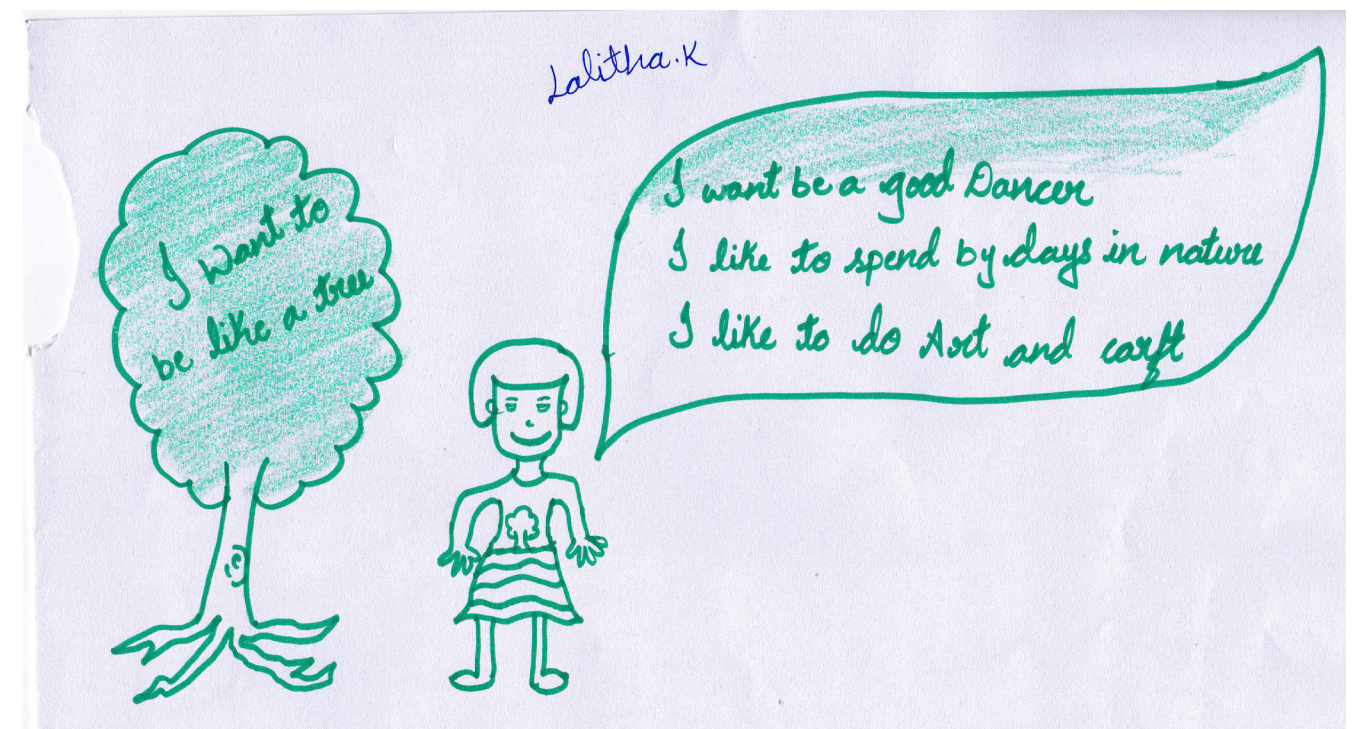 Lalitha.K
I want to
be like a tree
I want be a good Dancer
I like to spend by days in nature
I like to do Art and carft